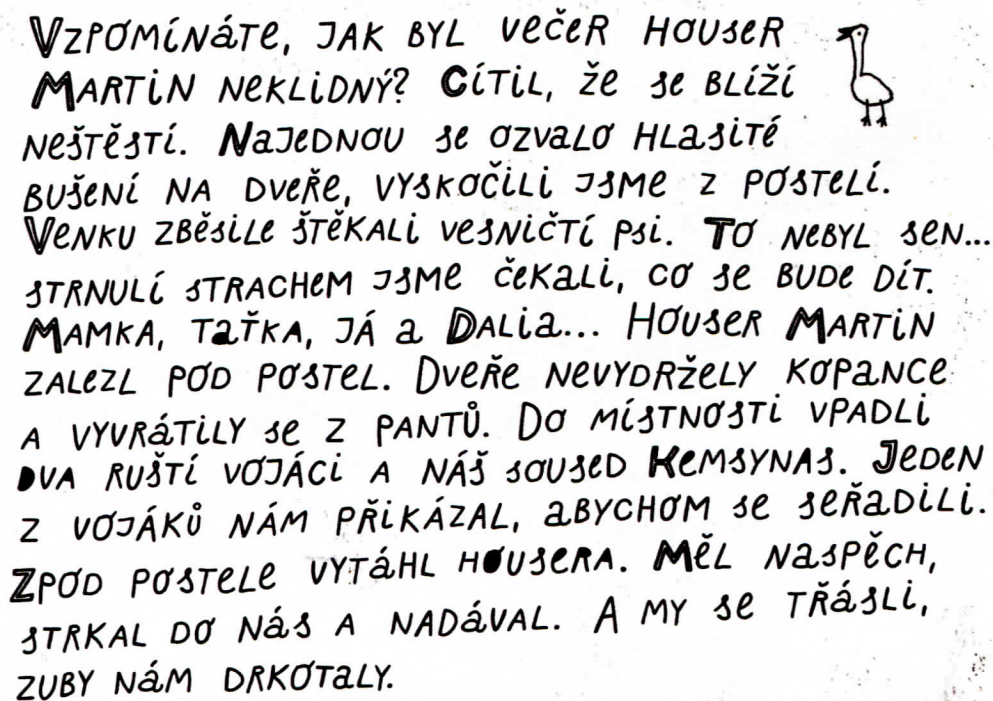 Vzpomínáte, jak byl večer houser
Martin neklidný? Cítil, že se blíží
neštěstí. Najednou se ozvalo hlasité
bušení na dveře, vyskočili jsme z postelí.
Venku zběsile štěkali vesničtí psi. To nebyl sen...
strnulí strachem jsme čekali, co se bude dít.
Mamka, taťka, já a Dalia... Houser Martin
zalezl pod postel. Dveře nevydržely kopance
a vyvrátily se z pantů. Do místnosti vpadli
dva ruští vojáci a náš soused Kemsynas. Jeden
z vojáků nám přikázal, abychom se seřadili.
Zpod postele vytáhl housera. Měl naspěch,
strkal do nás a nadával. A my se třásli,
zuby nám drkotaly.